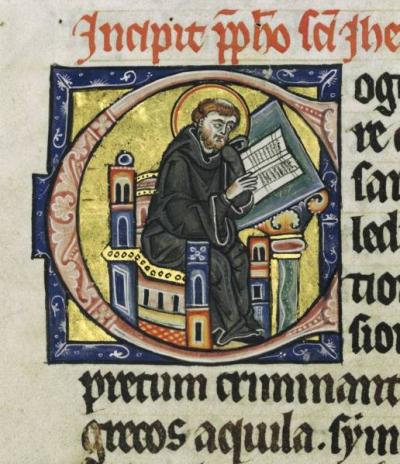 Incipit p̄pho sc̄i Jhe
Cogo
re
sar
ledi
tio
sio
pretum criminant
grecos aquila. sym